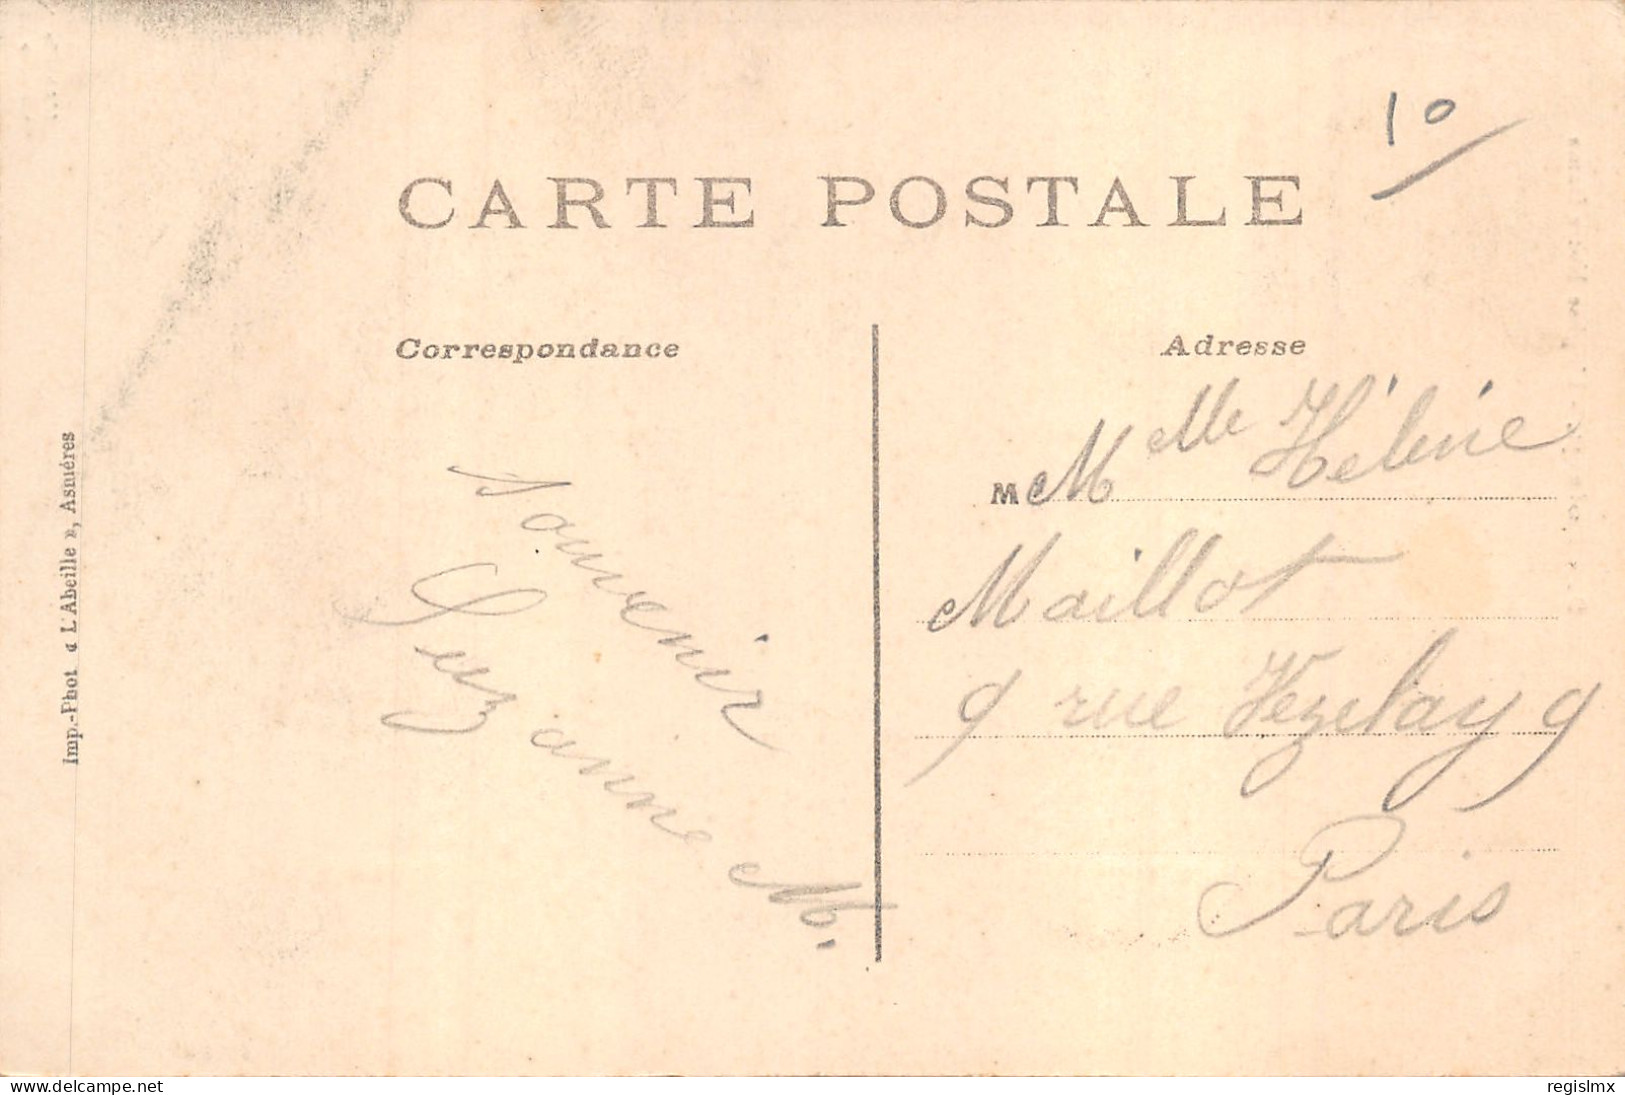 10
CARTE POSTALE
Correspondance
Adresse
Souvenir
Suzanne M.
M Melle Hélène
Maillot
9 rue Vezelay 9
Paris
Imp.-Phot « L'Abeille », Asnières
delcampe.net
regislmx